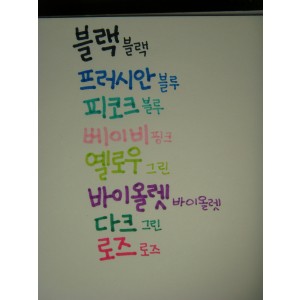 블랙 블랙
프러시안 블루
피코크 블루
베이비 핑크
옐로우 그린
바이올렛 바이올렛
다크 그린
로즈 로즈